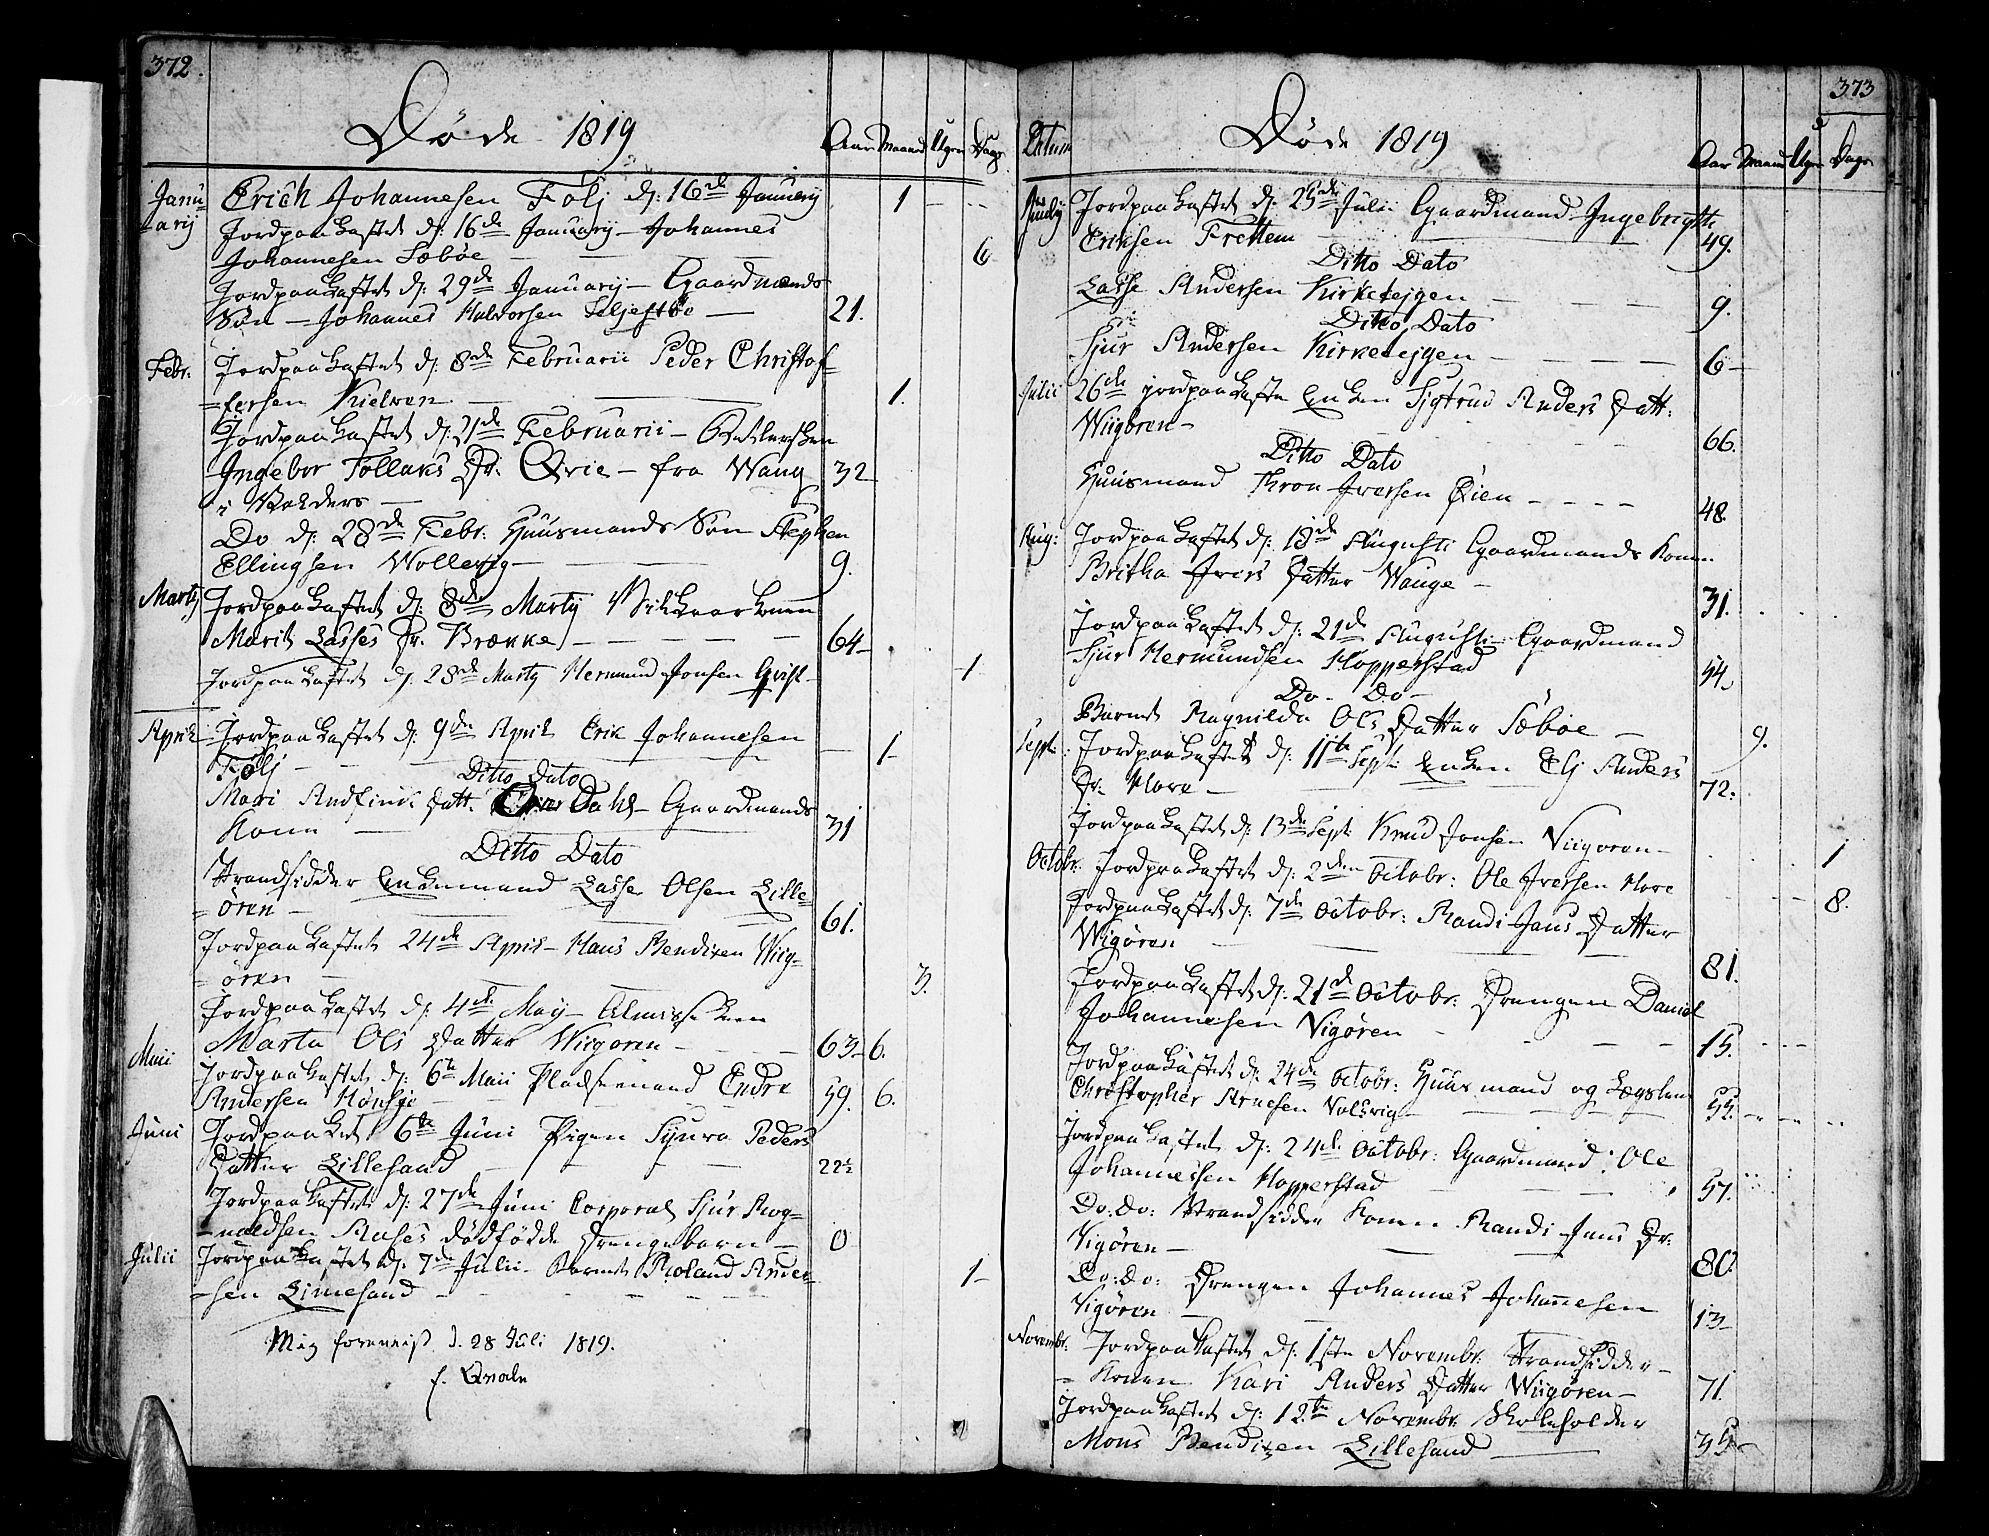 372.
Døde 1819
Aar Maaned Uger Dage
Janu- Erich Johannesen Følj d: 16de January 1
ary Jordpaakastet d: 16de January - Johannes
Johannesen Sæbøe 6
Jordpaakastet d: 29de January - Gaardmands
Søn - Johannes Halvorsen 21.
Febr. Jordpaakastet d: 8de Februarii Peder Christof-
=fersen 1.
Jordpaakastet d: 21de Februarii -
Ingebor Tollaks Dr. Qvie - fra Wang 32
i Valders
Do d: 28de Febr: Huusmands Søn Stephen
Ellingsen 9.
Martj Jordpaakastet d: 8de Martj Vilkaarkonen
Marit Lasses Dr. Brække 64
Jordpaakastet d: 28de Martj Hermund Jonsen 1
April Jordpaakastet d: 9de April Erik Johannesen 1
Følj
Ditto Dato
Mari Andfind Datt. Gaardmands
Kone 31
Ditto Dato
Strandsidder Enkemand Lasse Olsen Lille-
=ören 61.
Jordpaakastet 24de April - Hans Bendixen Wiig-
=ören 3.
Jordpaakastet d: 4de May -
Marta Ols Datter Wiigøren 63 6.
Maii Jordpaakastet d: 6te Maii Pladsemand Endre
Andersen Hønsje 59. 6.
Juni Jordpaak: 6te Juni Pigen Sjura Peders
Datter Lillesand 22½
Jordpaakastet d: 27de Juni Corporal Sjur Rog-
=naldsen dødfødde Drengebarn 0
Julii Jordpaakastet d: 7de Julii Barnet Roland Ander-
=sen Limesand 1
Mig foreviist d. 28 Juli 1819.
373
Døde 1819
Datum Aar Maaned Uger Dage
Jordpaakastet d: 25de Julii Gaardmand Ingebrigth
Eriksen Frettem 49.
Ditto Dato
Lasse Andersen Kirketejgen 9.
Ditto Dato
Sjur Andersen Kirketejgen 6
Julii 26de jordpaakaste Enken Sigtrud Anders Datt:
Wiigören 66.
Ditto Dato
Huusmand Thron Iversen Øien 48.
Aug: Jordpaakastet d: 18de Augusti Gaardmands Konen
Britha Ivers Datter Wange 31.
Jordpaakastet d: 21de Augusti Gaardmand
Sjur Hermundsen Hopperstad 54.
Do. Do
Barnet Ragnilda Ols Datter Sæbøe 9.
Sept: Jordpaakastet d: 11te Sept: Enken Elj Anders
Dr. Hove 72:
Jordpaakastet d: 13de Sept: Knud Jonsen Viigøren 1
Octobr. Jordpaakastet d: 2den Octobr: Ole Iversen Hove 8.
Jordpaakastet d: 7de Octobr: Randi Jans Datter
Wigøren 81.
Jordpaakastet d: 21de Octobr: Drengen Daniel
Johannesen Vigøren 15.
Jordpaakastet d: 24de Octobr: Huusmand og Lægslem
Christopher Arnesen Volsvig 55.
Jordpaakastet d: 24de Octobr: Gaardmand: Ole
Johannessen Hopperstad 57.
Do: Do: Strandsidder Konen Randi Jans Dr:
Vigøren 80.
Do: Do: Drengen Johannes Johannesen
Vigøren 13
Novembr: Jordpaakastet d: 1ste Novembr: Strandsidder-
=Konen Kari Anders Datter Wiigøren 71.
Jordpaakastet d: 12te Novembr. Skoleholder
Mons Bendixen Lillesand 35